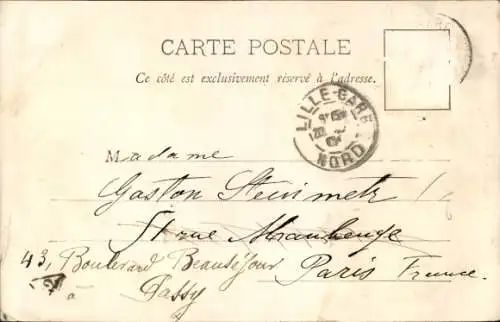 CARTE POSTALE
Ce côté est exclusivement réservé à l'adresse.
LILLE-GARE
NORD
Madame
Gaston Steinmetz
51 rue Maubeuge
43, Boulevard Beauséjour Paris France.
à Passy